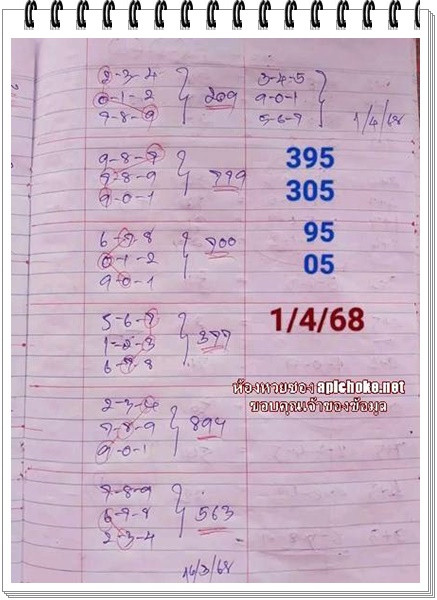 2-3-4
0-1-2 209
7-8-9
3-4-5
9-0-1
5-6-7
1/4/68
9-8-7
7-8-9 779
9-0-1
395
305
6-7-8
0-1-2 700
9-0-1
95
05
5-6-7
1-2-3 377
6-7-8
1/4/68
ห้องหวยซอง apichoke.net
ขอบคุณเจ้าของข้อมูล
2-3-4
7-8-9 894
9-0-1
7-8-9
6-7-8 563
2-3-4
16/3/68